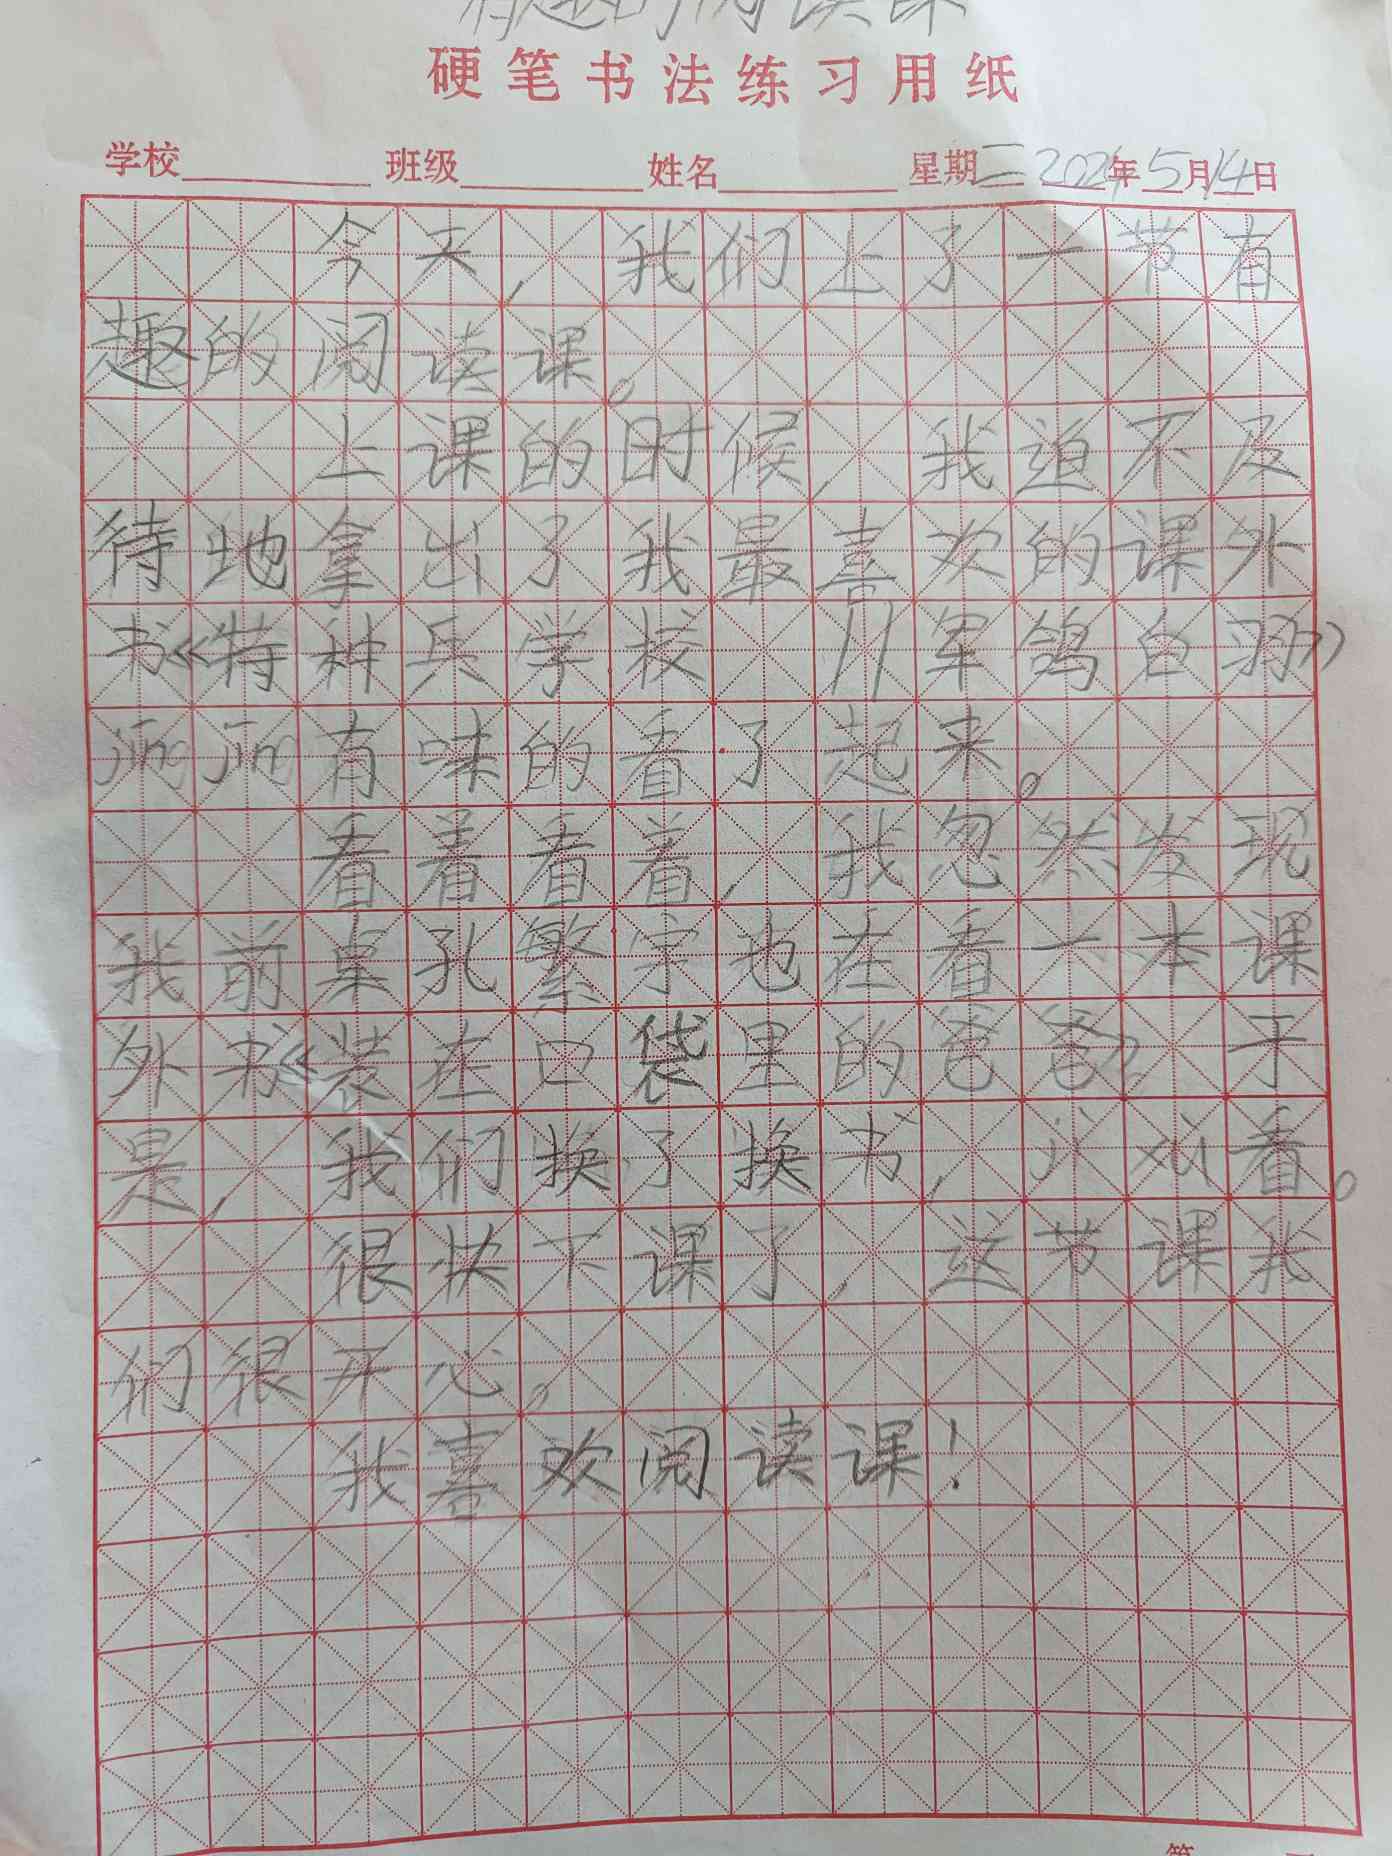 有趣的阅读课
硬笔书法练习用纸
学校 班级 姓名 星期二 2024年5月14日
今天，我们上了一节有
趣的阅读课。
上课的时候，我迫不及
待地拿出了我最喜欢的课外
书《特种兵学校 儿军鸽白羽》
jīng jīng有味的看了起来。
看着看着，我忽然发现
我前桌孔繁宇也在看一本课
外书《装在口袋里的爸爸》 于
是，我们换了换书， 看。
很快下课了，这节课我
们很开心。
我喜欢阅读课！
第